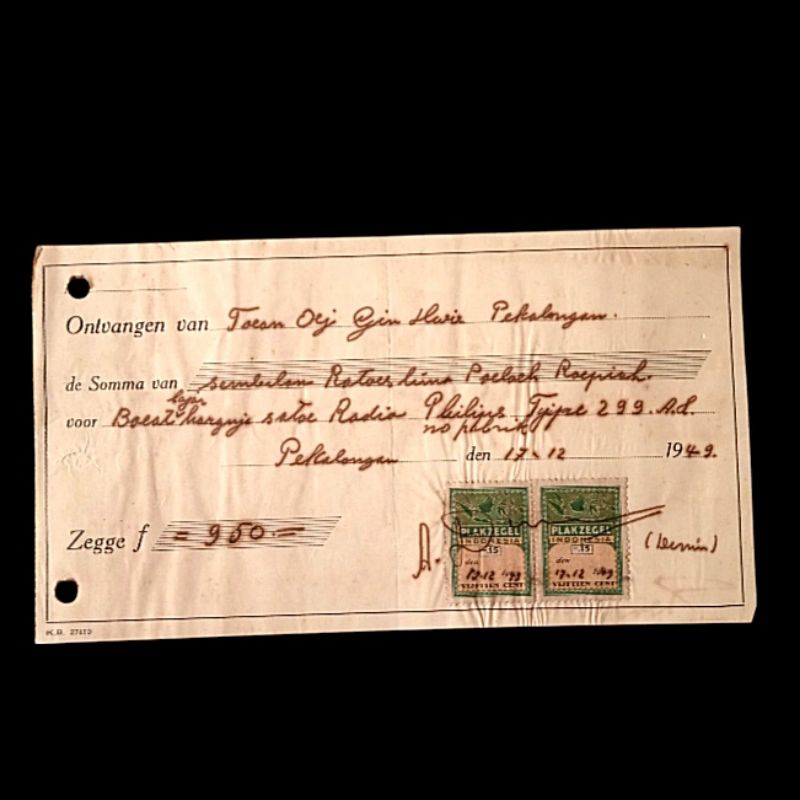 Ontvangen van Toean Oej Gin Hwie Pekalongan.
de Somma van sembilan Ratoes lima Poeloeh Roepiah.
voor Boeat harganja satoe Radio Philips Type 299. A.L.
no pabrik
Pekalongan den 17-12 1949.
Zegge f = 950.—
A.
PLAKZEGEL PLAKZEGEL
INDONESIA INDONESIA
15 15
den den
17-12 1949 17-12 1949
VIJFTIEN CENT VIJFTIEN CENT
K.B. 27419